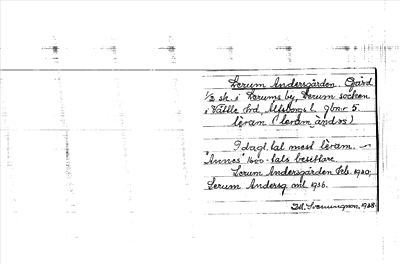 Lerum Andersgården Gård
1/2 sk. i Lerums by, Lerum socken
i Vättle hd, Älvsborgs l. gbnr 5.
leram (leram ändəs)
I dagl. tal mest leram. —
"Annes" 1600-tals besittare
Lerum Andersgården Hb. 1930,
Lerum Andersg ml. 1936.
1938